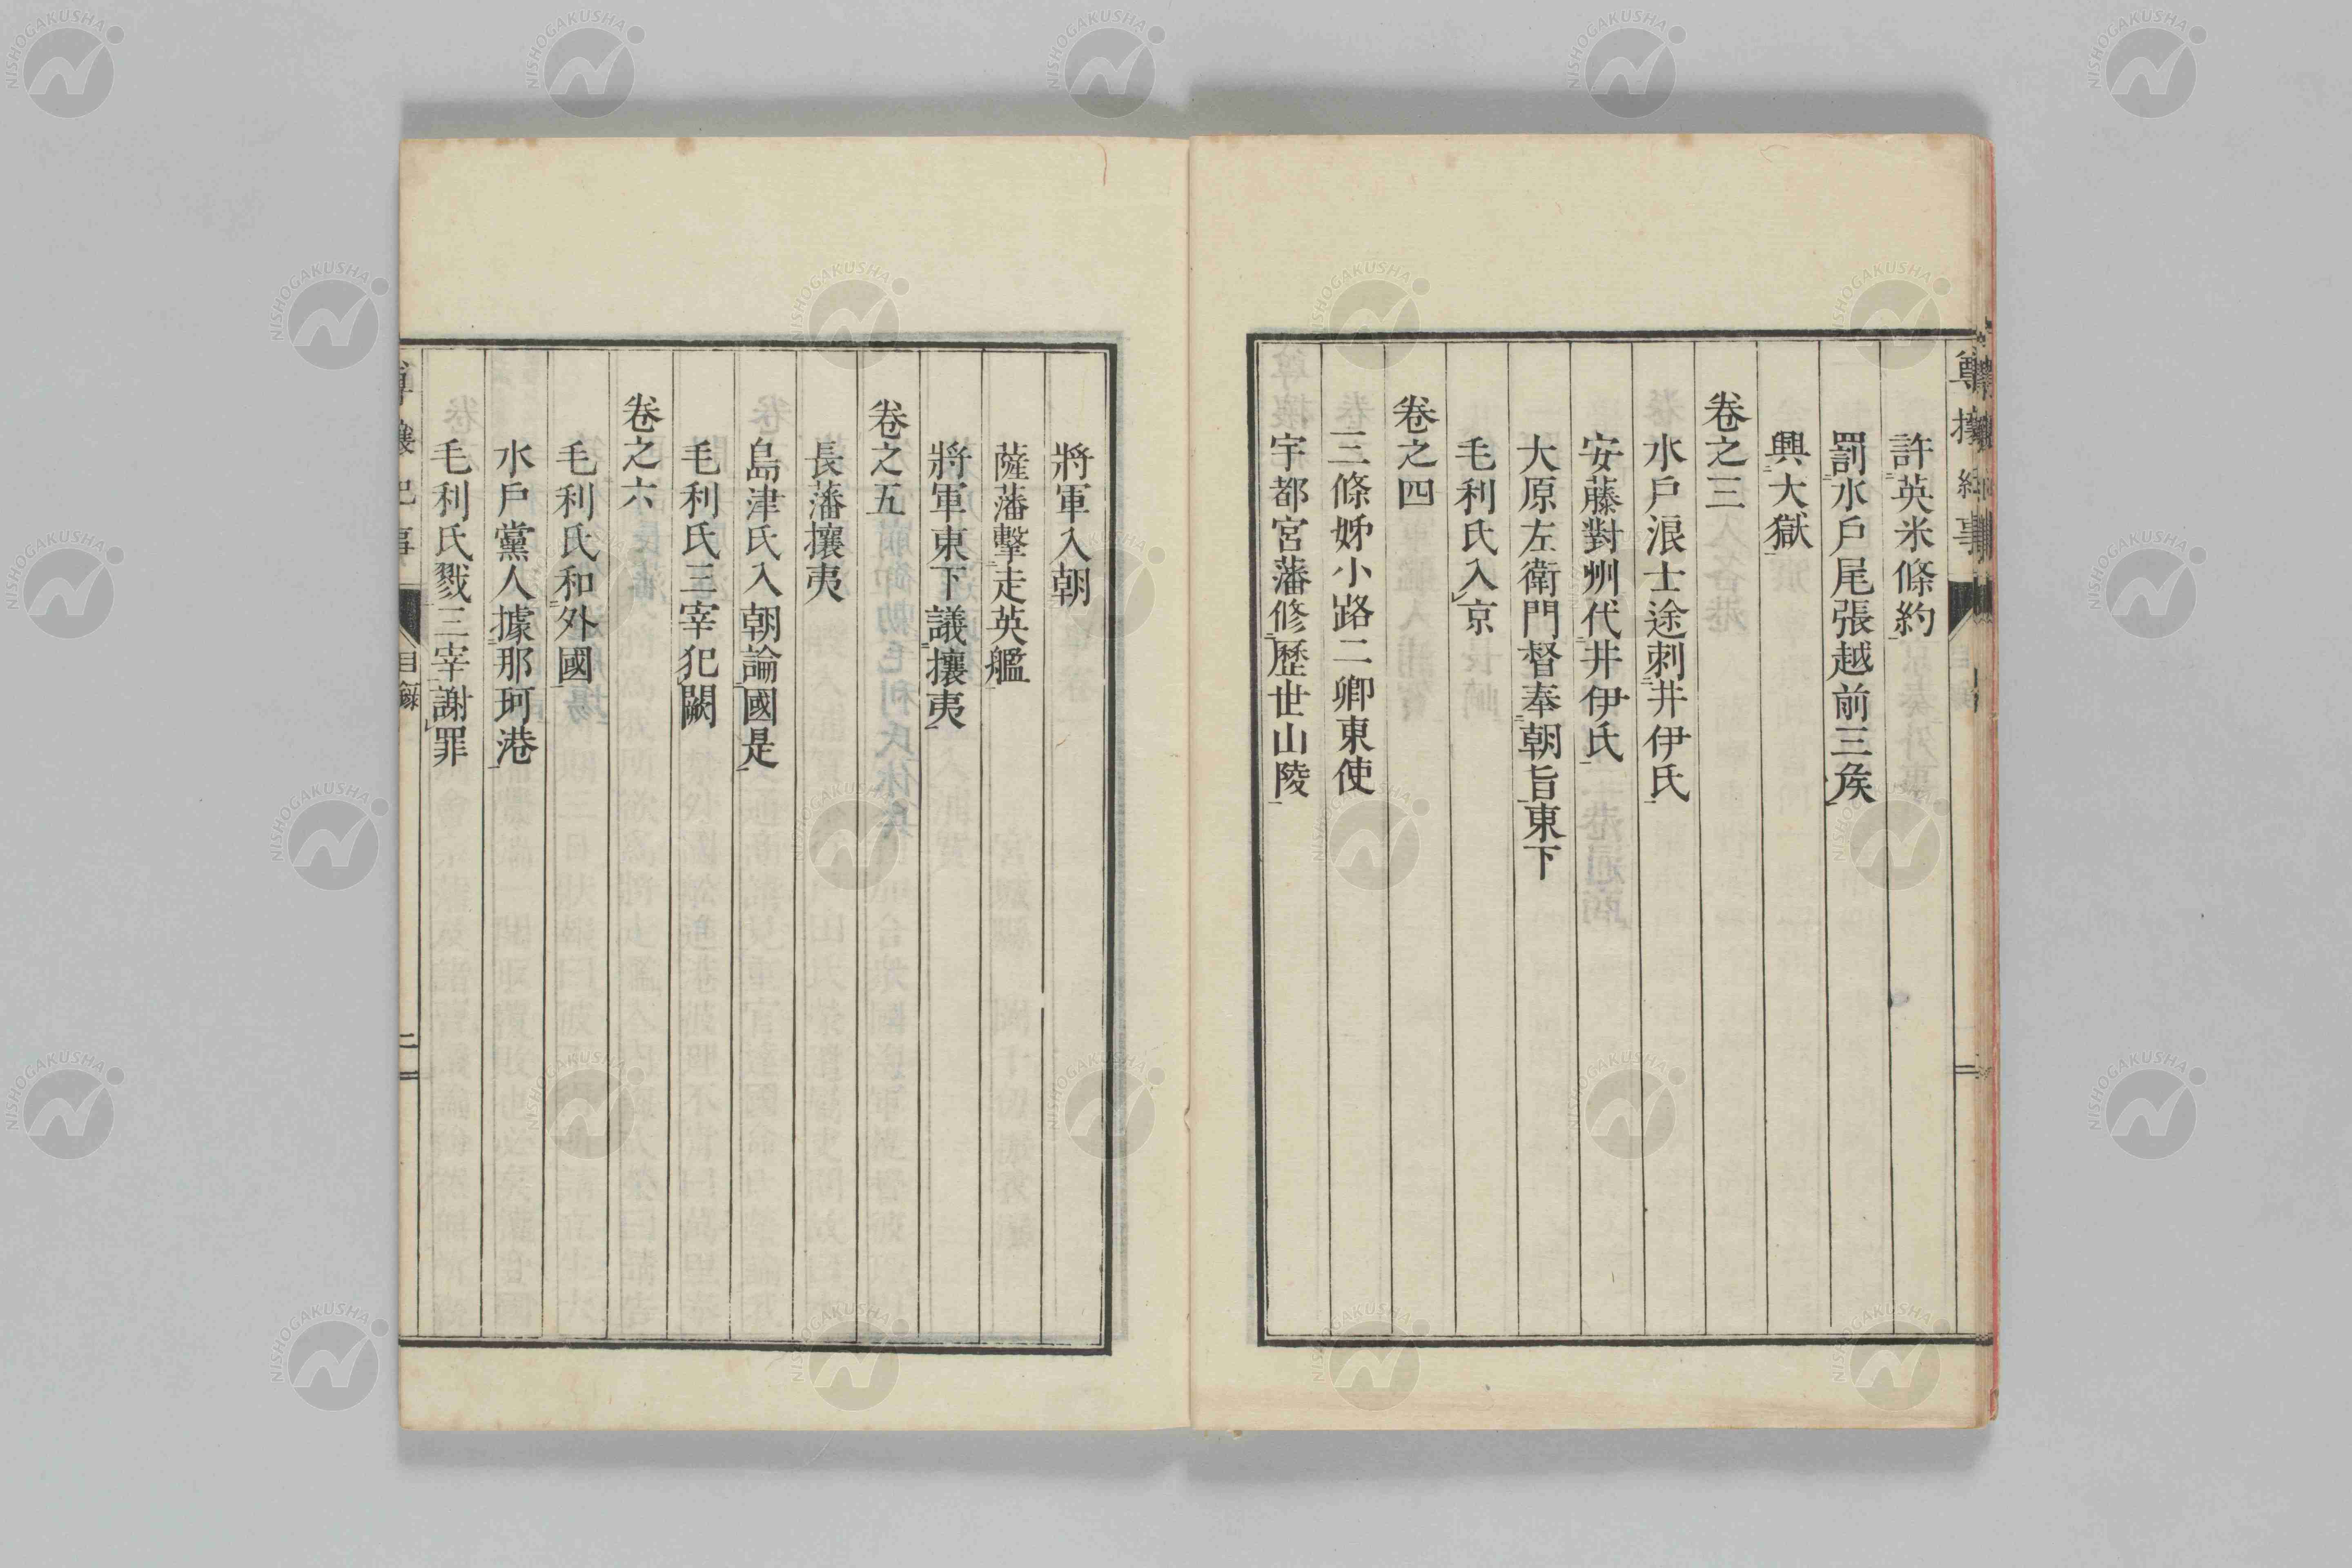 尊攘紀事
許英米條約
罰水戶尾張越前三矦
興大獄
卷之三
水戶浪士途刺井伊氏
安藤對州代井伊氏
大原左衛門督奉朝旨東下
毛利氏入京
卷之四
三條姊小路二卿東使
宇都宮藩修歷世山陵
將軍入朝
薩藩擊走英艦
將軍東下議攘夷
卷之五
長藩攘夷
島津氏入朝論國是
毛利氏三宰犯闕
卷之六
毛利氏和外國
水戶黨人據那珂港
毛利氏戮三宰謝罪
尊攘紀事
目錄
二
NISHOGAKUSHA